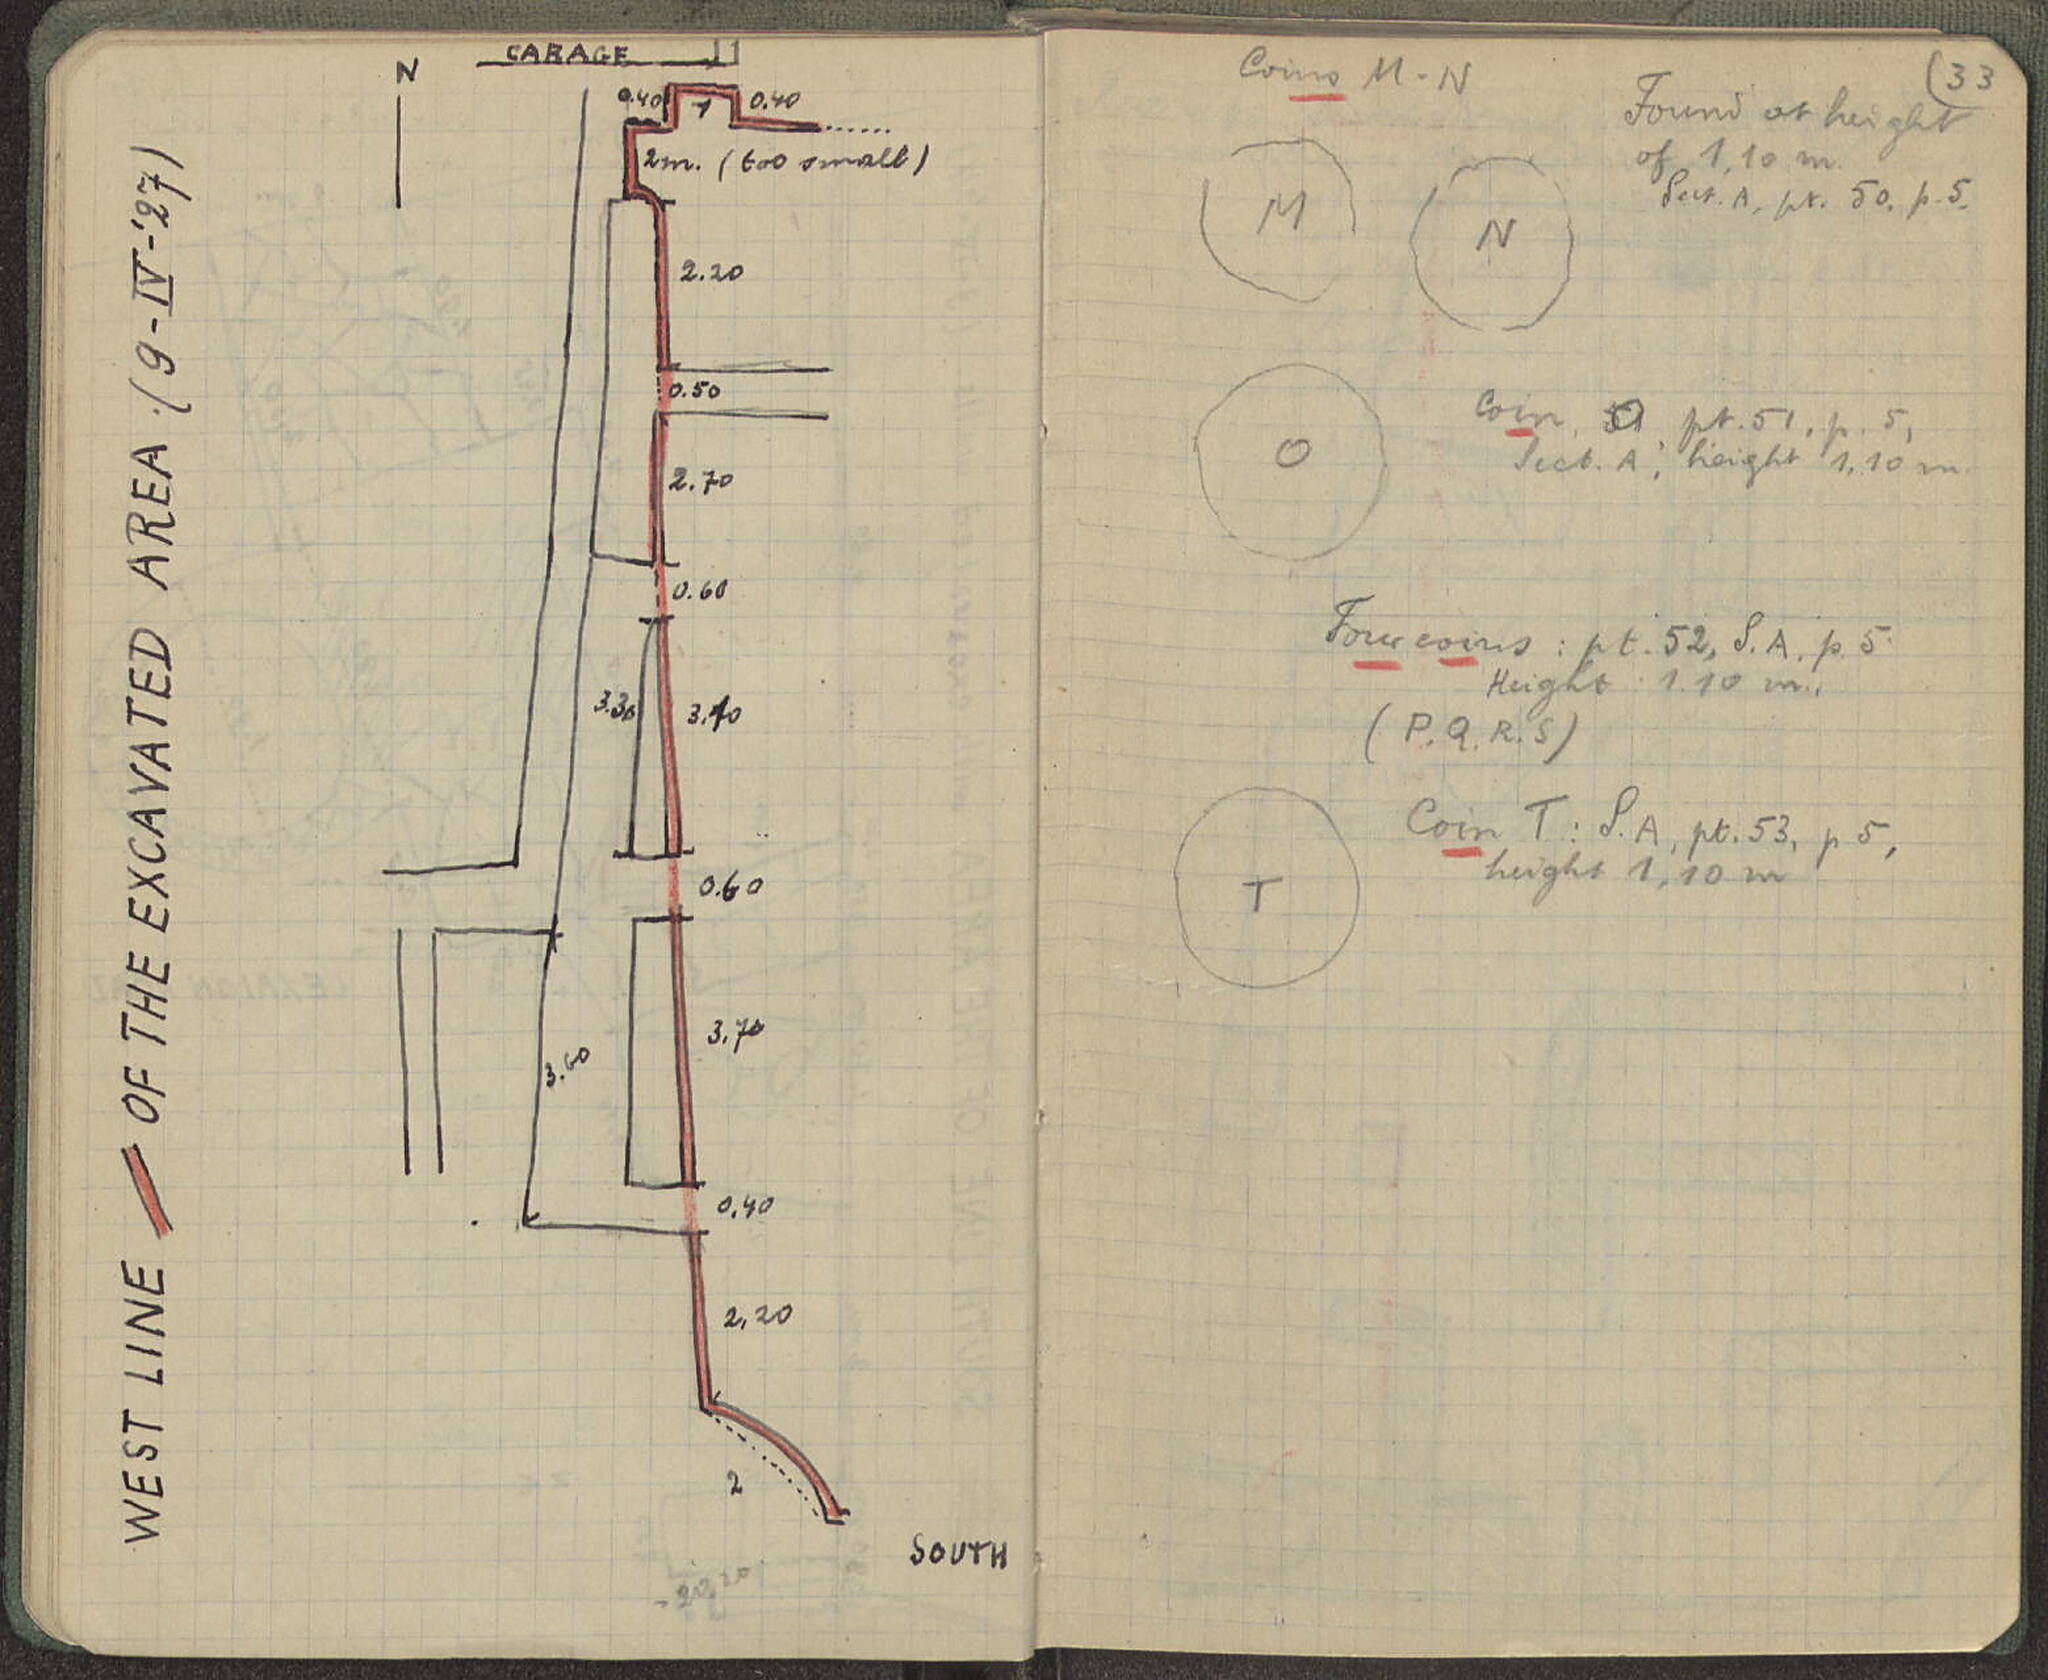 WEST LINE OF THE EXCAVATED AREA (9-IV-'27)
N
GARAGE
0.40 1 0.40
2m. (too small)
2.20
0.50
2.70
0.60
3.30
0.60
3.70
3.60
0.40
2,20
2
SOUTH
(33
Coins M-N
Found at height
of 1,10 m.
Sect. A, pt. 50, p. 5.
M
N
Coin O pt. 51, p. 5,
Sect. A; height 1,10 m.
O
Four coins: pt. 52, S. A, p. 5
Height 1.10 m.,
(P.Q.R.S)
Coin T: S. A, pt. 53, p 5,
height 1,10 m
T